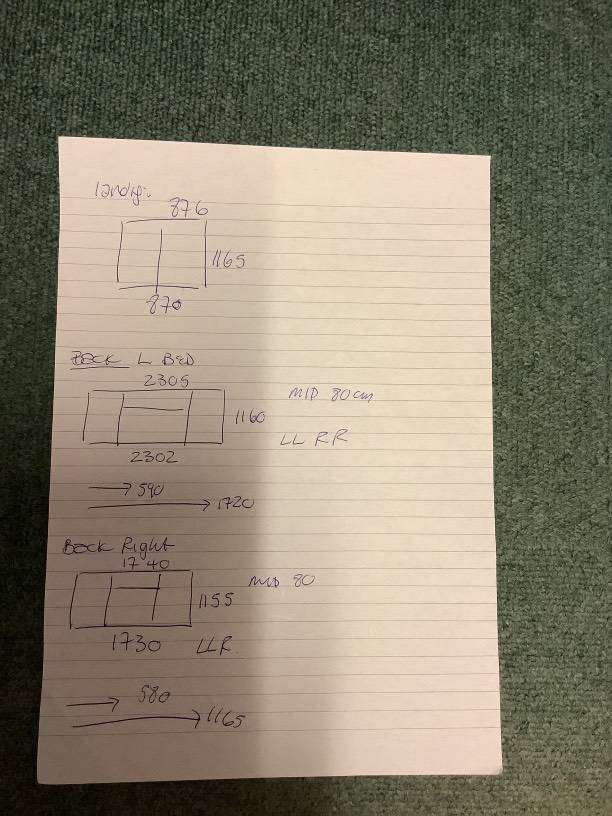 landig:
876
1165
870
BACK L BED
2305
MID 80cm
1160
LL RR
2302
590
1720
Back Right
1740
MID 80
1155
1730 LLR
580
1165